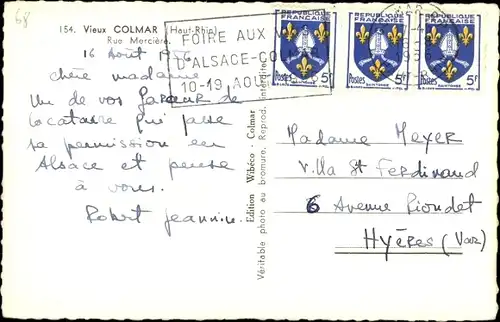 68
154. Vieux COLMAR (Haut-Rhin)
Rue Mercière.
FOIRE AUX
D'ALSACE-COLMAR
10-19 AOUT
REPUBLIQUE FRANÇAISE
Postes 5f
SAINTONGE
REPUBLIQUE FRANÇAISE
Postes 5f
SAINTONGE
REPUBLIQUE FRANÇAISE
Postes 5f
SAINTONGE
16 Août
chère madame
Un de vos garçons de
locataire qui passe
sa permission en
Alsace et pense
à vous.
Robert Jeannine.
Edition Wibéco - Colmar
Véritable photo au bromure. Reprod. interdite.
Madame Meyer
Villa St Ferdinand
6 Avenue Riondet
Hyères (Var)